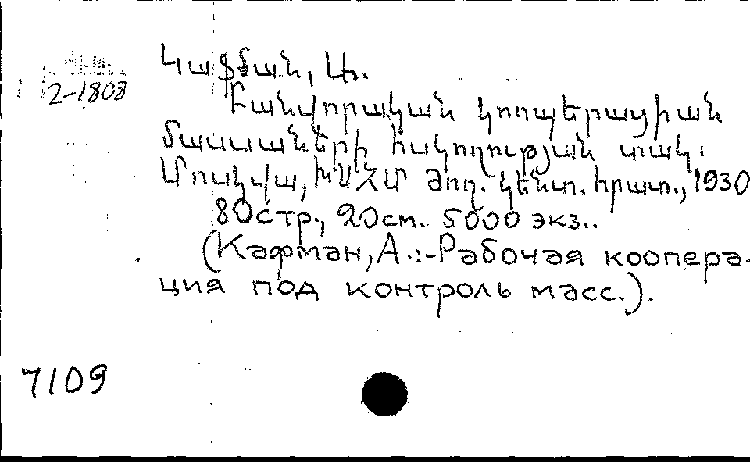 Կաֆման, Ա.
2-1808
Բանվորական կոոպերացիան
մասսաների հսկողության տակ:
Մոսկվա, ԽՍՀՄ ժող. կենտ. հրատ., 1930
80стр., 20см. 5000 экз..
(Кафман, А.:-Рабочая коопера-
ция под контроль масс.).
7109